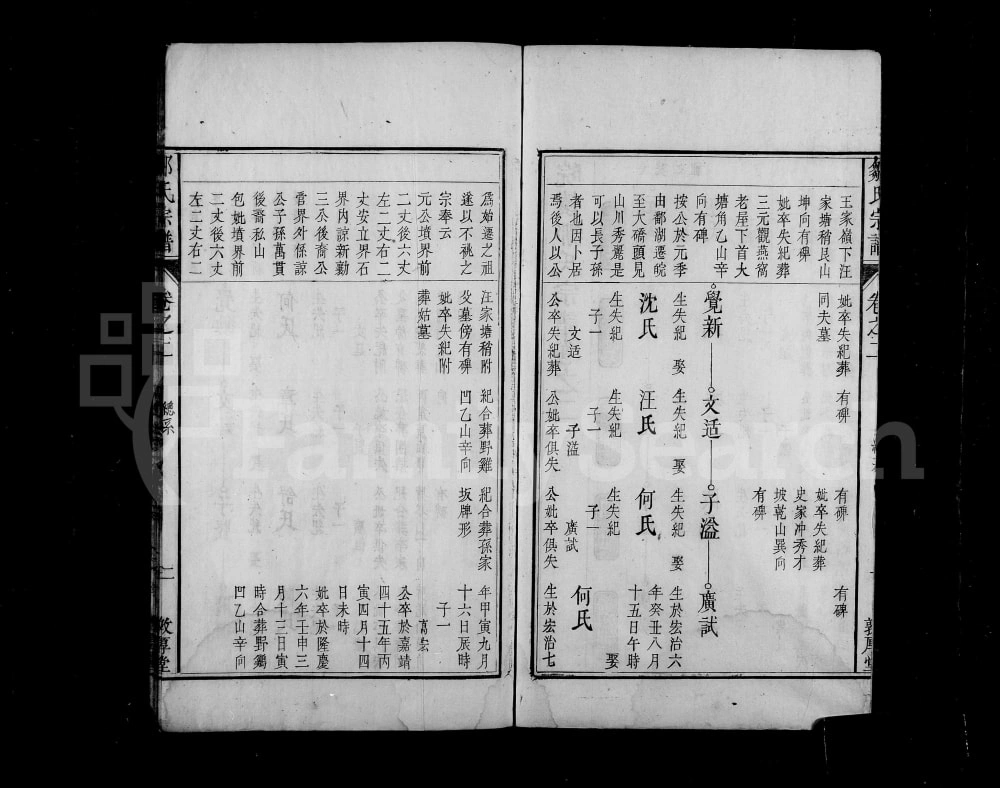 鄒氏宗譜
卷之二
敦厚堂
王家嶺下汪
家塘稍艮山
坤向有碑
妣卒失紀葬
三元觀燕窩
老屋下首大
塘角乙山辛
向有碑
按公於元季
由鄱湖遷皖
至大橋頭見
山川秀麗是
可以長子孫
者也因卜居
焉後人以公
妣卒失紀葬
同夫墓
覺新
生失紀 娶
沈氏
生失紀
子一
文适
公卒失紀葬
有碑
文适
生失紀 娶
汪氏
生失紀
子一
子溢
公妣卒俱失
有碑
妣卒失紀葬
史家冲秀才
坡乾山巽向
有碑
子溢
生失紀 娶
何氏
生失紀
子一
廣試
公妣卒俱失
有碑
廣試
生於宏治六
年癸丑八月
十五日午時
娶
何氏
生於宏治七
為始遷之祖
遂以不祧之
宗奉云
元公墳界前
二丈後六丈
左二丈右二
丈安立界石
界內諒新勤
三公後裔公
管界外係諒
公子孫萬貫
後裔私山
包妣墳界前
二丈後六丈
左二丈右二
汪家塘稍附
父墓傍有碑
妣卒失紀附
葬姑墓
紀合葬野雞
凹乙山辛向
紀合葬孫家
坂牌形
年甲寅九月
十六日辰時
子一
萬宏
公卒於嘉靖
四十五年丙
寅四月十四
日未時
妣卒於隆慶
六年壬申三
月十三日寅
時合葬野鷄
凹乙山辛向
氏宗譜
卷之二
總系
二
敦厚堂
FamilySearch